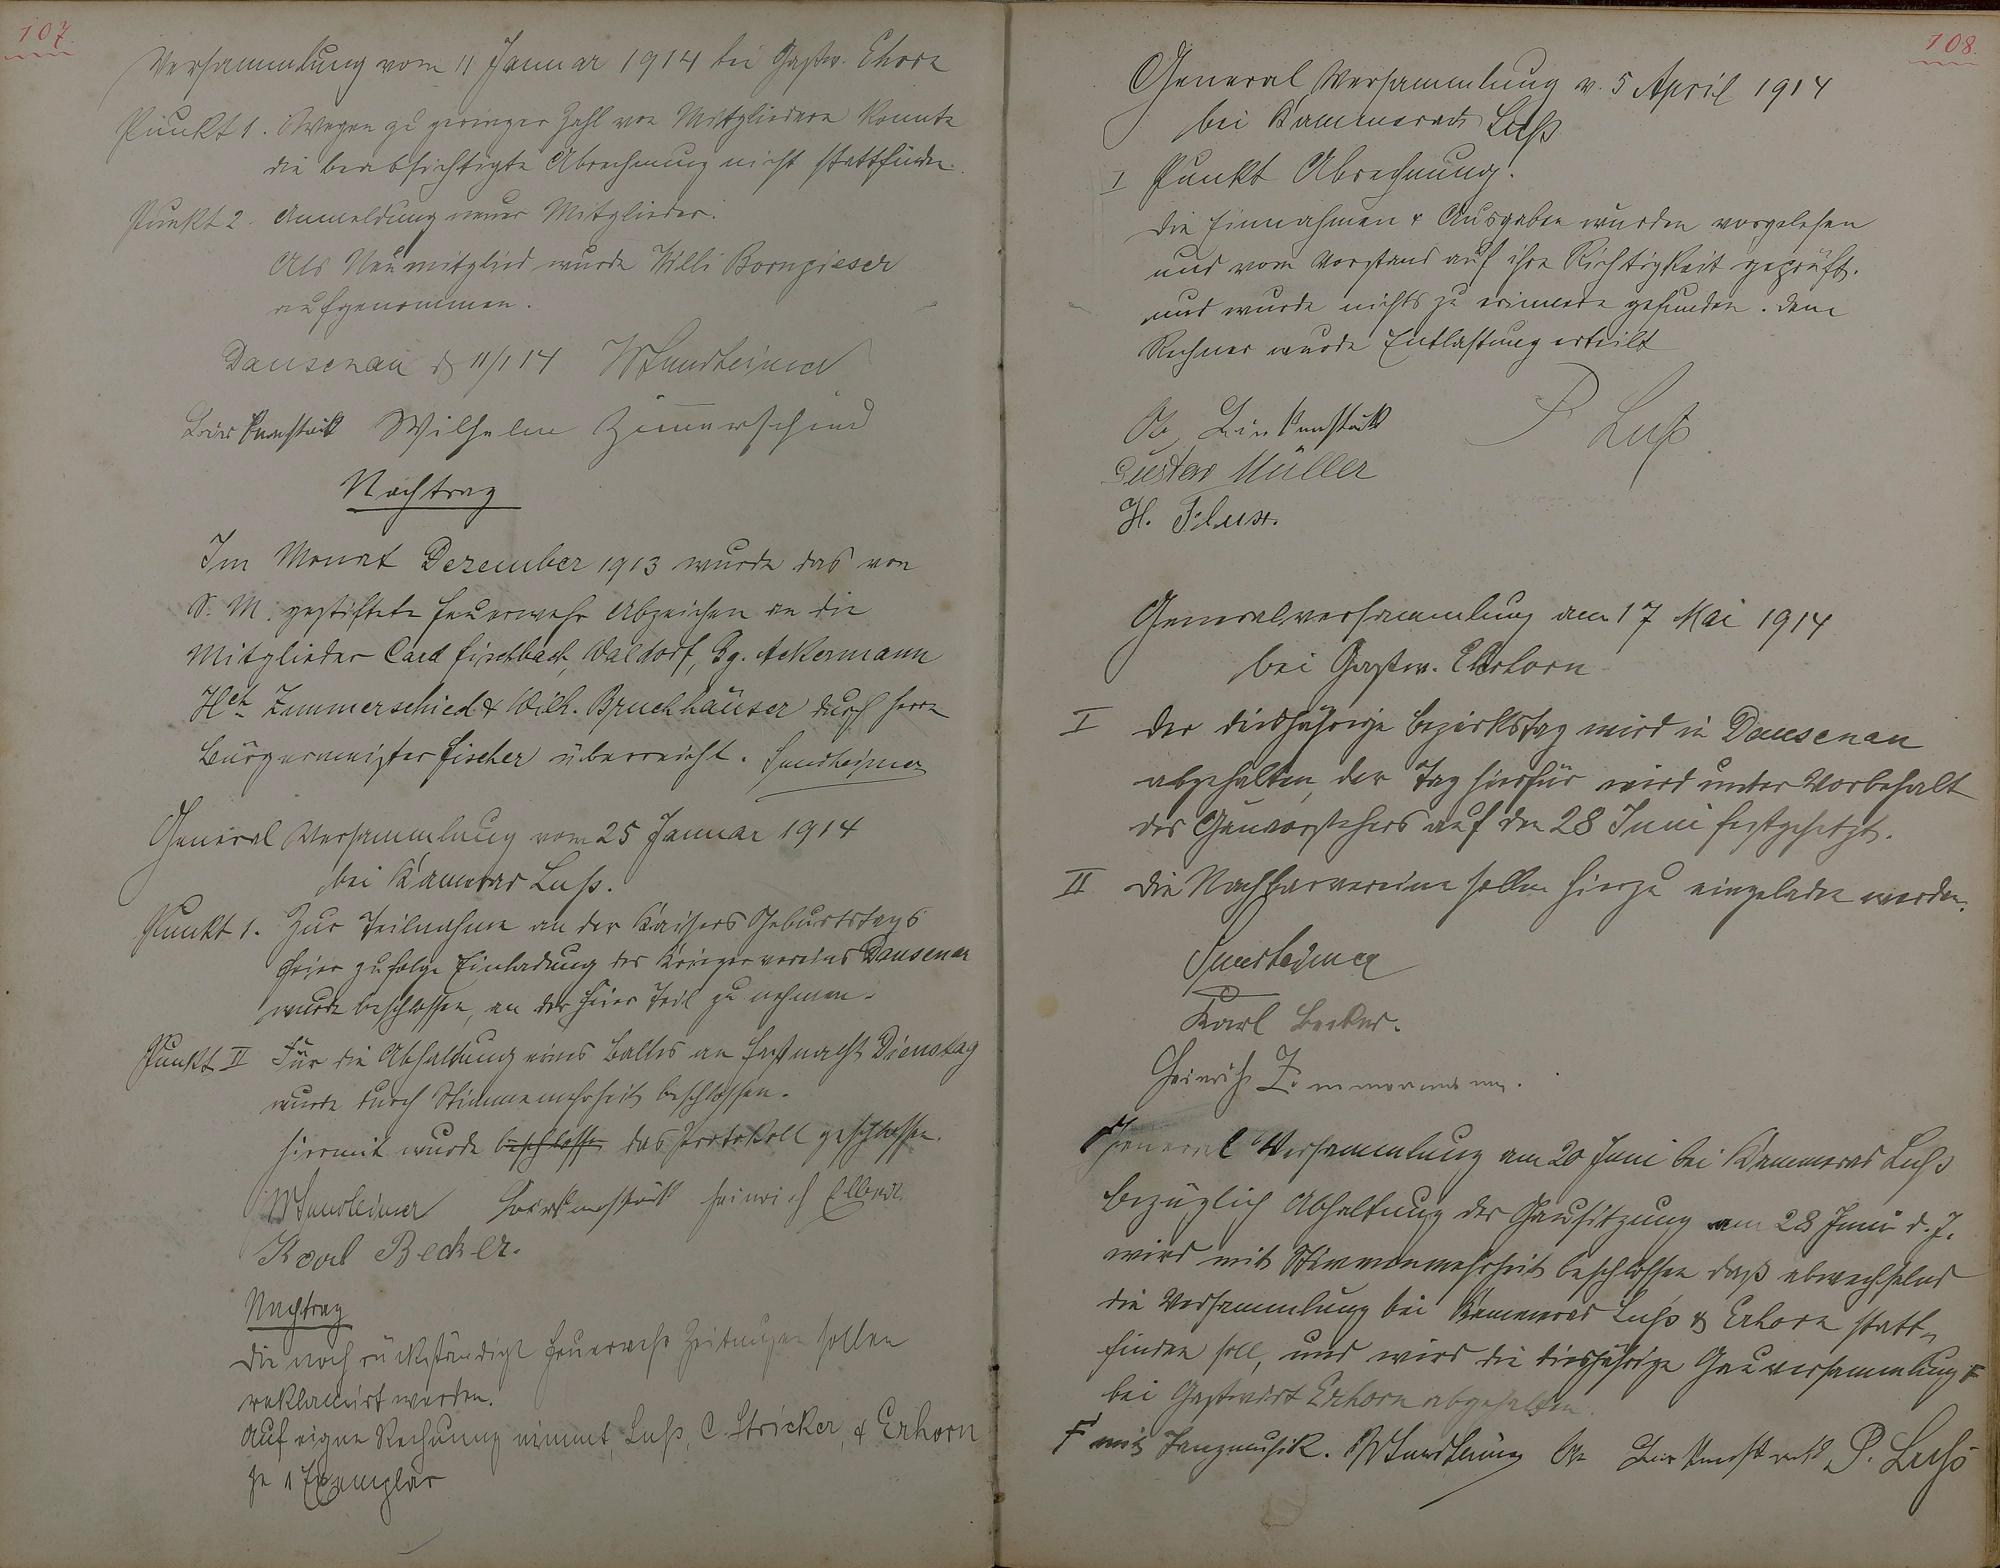 107.
Versammlung vom 11 Januar 1914 bei Gastw. Ehorn
Punkt 1. Wegen zu geringer Zahl von Mitgliedern konnte
die beabsichtigte Abrechnung nicht stattfinden.
Punkt 2. Anmeldung neuer Mitglieder.
Als Neumitglied wurde Willi Borngiesser
aufgenommen.
Dausenau d 11/1 14 W Sundheimer
Linkenstock Wilhelm Zimmerschied
Nachtrag
Im Monat Dezember 1913 wurde das von
S. M. gestiftete Feuerwehr Abzeichen an die
Mitglieder Carl Fischbach, Waldorf, Gg. Ackermann
Hch Zimmerschied & Wilh. Bruchhäuser durch Herrn
Bürgermeister Fischer überreicht. Sundheimer
General Versammlung vom 25 Januar 1914
bei Kamerad Luß.
Punkt 1. Zur Teilnahme an der Kaisers Geburtstags
Feier zufolge Einladung des Kriegervereins Dausenau
wurde beschlossen, an der Feier Teil zu nehmen.
Punkt II Für die Abhaltung eines Balles an Fastnacht Dienstag
wurde durch Stimmenmehrheit beschlossen.
Hiermit wurde beschlossen das Protokoll geschlossen.
W Sundheimer Linkenstock Heinrich Elbert
Karl Becker.
Nachtrag
Die noch rückständige Feuerwehr Zeitungen sollen
reklamirt werden.
Auf eigne Rechnung nimmt, Luß, C. Stricker, & Erhorn
je 1 Exemplar
108.
General Versammlung v. 5 April 1914
bei Kammerad Luß
I Punkt Abrechnung.
Die Einnahmen & Ausgaben wurden vorgelesen
und vom Vorstand auf ihre Richtigkeit geprüft.
und wurde nichts zu erinnern gefunden. Dem
Rechner wurde Entlastung erteilt
Linkenstock P Luß
Gustav Müller
H. Flux.
Generalversammlung am 17 Mai 1914
bei Gastw. Ehrhorn
I Der diesjährige Bezirkstag wird in Dausenau
abgehalten, der Tag hierfür wird unter Vorbehalt
des Gauvorstehers auf den 28 Juni festgesetzt.
II Die Nachbarvereine sollen hierzu eingeladen werden.
Sundheimer
Karl Becker.
Heinrich Zimmermann.
General Versammlung am 20 Juni bei Kammerad Luß
Bezüglich Abhaltung der Gausitzung am 28 Juni d. J.
wird mit Stimmenmehrheit beschlossen daß abwechselnd
die Versammlung bei Kammerad Luß & Erhorn statt-
finden soll, und wird die diesjährige Gauversammlung F
bei Gastwirt Erhorn abgehalten.
F mit Tanzmusik. W Sundheimer Linkenstock P. Luß